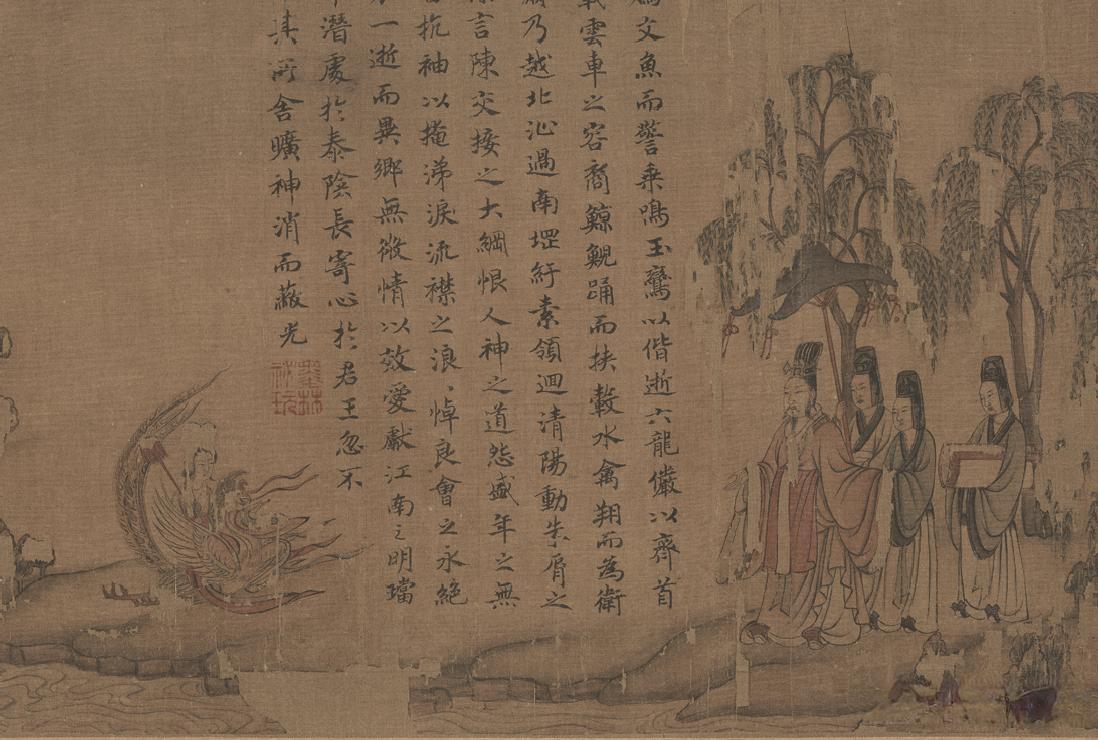 文魚而警乘鳴玉鸞以偕逝六龍儼以齊首
雲車之容裔鯨鯢踊而扶轂水禽翔而為衛
乃越北沚過南堽紆素領迴清陽動朱脣之
言陳交接之大綱恨人神之道怨盛年之無
抗袖以掩涕淚流襟之浪〻悼良會之永絕
一逝而異鄉無微情以效愛獻江南之明璫
潛處於泰陰長寄心於君王忽不
其所舍曠神消而蔽光
墨林祕玩